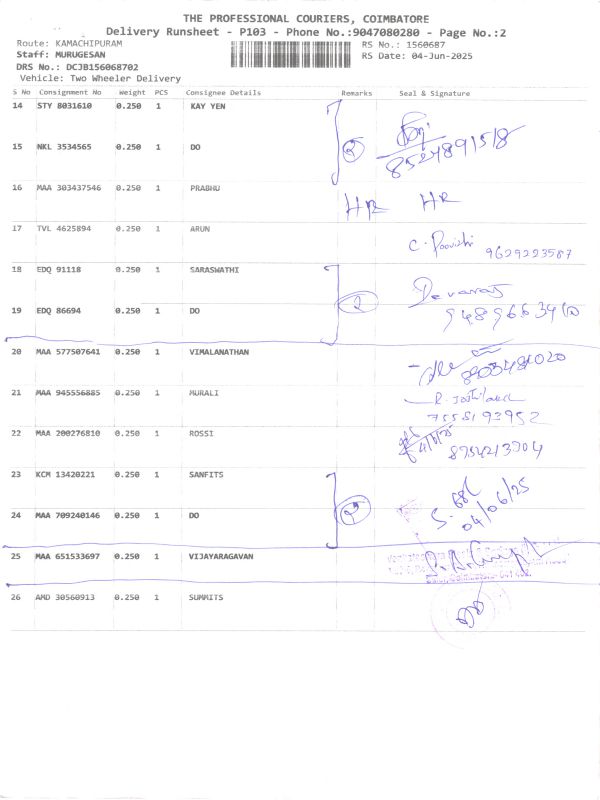 THE PROFESSIONAL COURIERS, COIMBATORE
Delivery Runsheet - P103 - Phone No.:9047080280 - Page No.:2
Route: KAMACHIPURAM RS No.: 1560687
Staff: MURUGESAN RS Date: 04-Jun-2025
DRS No.: DCJB156068702
Vehicle: Two Wheeler Delivery
S No Consignment No Weight PCS Consignee Details Remarks Seal & Signature
14 STY 8031610 0.250 1 KAY YEN
15 NKL 3534565 0.250 1 DO 2 8524891518
16 MAA 303437546 0.250 1 PRABHU HR HR
17 TVL 4625894 0.250 1 ARUN C. Poovizhi 9629223587
18 EDQ 91118 0.250 1 SARASWATHI Devaraj
19 EDQ 86694 0.250 1 DO 2
20 MAA 577507641 0.250 1 VIMALANATHAN
21 MAA 945556885 0.250 1 MURALI
7558193952
22 MAA 200276810 0.250 1 ROSSI 8754213704
23 KCM 13420221 0.250 1 SANFITS
24 MAA 709240146 0.250 1 DO 2 04/06/25
25 MAA 651533697 0.250 1 VIJAYARAGAVAN
26 AMD 30560913 0.250 1 SUMMITS